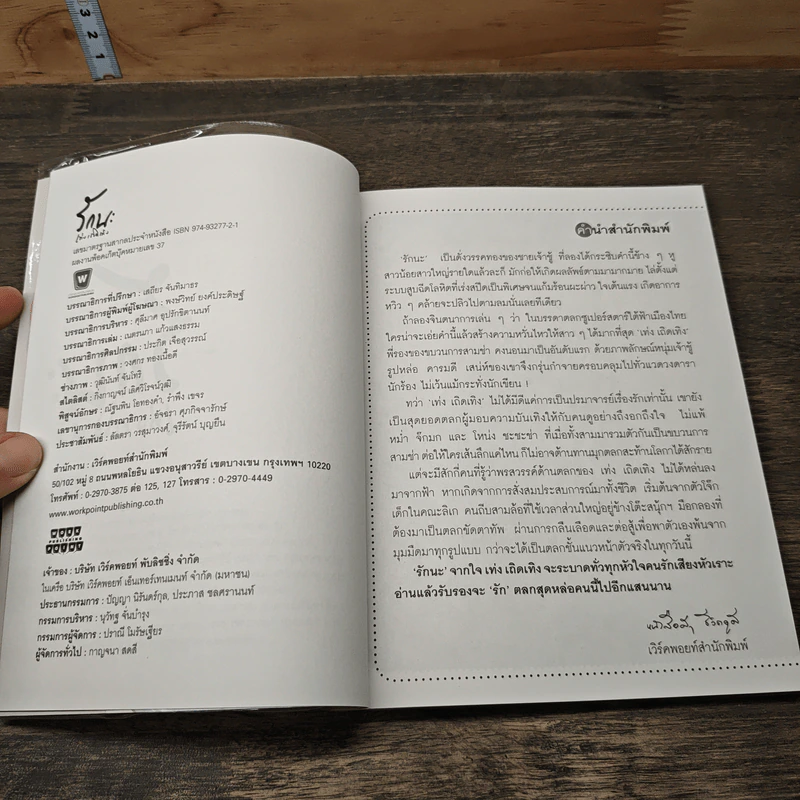 3
2
1
รักนะ
เลขมาตรฐานสากลประจำหนังสือ ISBN 974-93277-2-1
ผลงานพ็อคเก็ตบุ๊คหมายเลข 37
W
บรรณาธิการที่ปรึกษา : เสถียร จันทิมาธร
บรรณาธิการผู้พิมพ์ผู้โฆษณา : พงษ์วิทย์ ยงค์ประดิษฐ์
บรรณาธิการบริหาร : คุลีมาศ อุปรักขิตานนท์
บรรณาธิการเล่ม : เนตรนภา แก้วแสงธรรม
บรรณาธิการศิลปกรรม : ประกิต เจือสุวรรณ์
บรรณาธิการภาพ : วงศกร ทองเนื้อดี
ช่างภาพ : วุฒินันท์ จันโทริ
สไตลิสต์ : กิ่งกาญจน์ เลิศวิโรจน์วุฒิ
พิสูจน์อักษร : ณัฐนพิน โอทองคำ, รำพึง เขจร
เลขานุการกองบรรณาธิการ : อัจธรา ศุภกิจจารักษ์
ประชาสัมพันธ์ : ลัดดรา วรสุมาวงศ์, จุรีรัตน์ บุญยืน
สำนักงาน : เวิร์คพอยท์สำนักพิมพ์
50/102 หมู่ 8 ถนนพหลโยธิน แขวงอนุสาวรีย์ เขตบางเขน กรุงเทพฯ 10220
โทรศัพท์ : 0-2970-3875 ต่อ 125, 127 โทรสาร : 0-2970-4449
www.workpointpublishing.co.th
WORK
PUBLISHING
POINT
เจ้าของ : บริษัท เวิร์คพอยท์ พับลิชชิ่ง จำกัด
ในเครือ บริษัท เวิร์คพอยท์ เอ็นเทอร์เทนเมนท์ จำกัด (มหาชน)
ประธานกรรมการ : ปัญญา นิรันดร์กุล, ประภาส ชลศรานนท์
กรรมการบริหาร : นุวัทฐ จันบำรุง
กรรมการผู้จัดการ : ปราณี โมรัษเฐียร
ผู้จัดการทั่วไป : กาญจนา สดสี
คำนำสำนักพิมพ์
‘รักนะ’ เป็นดั่งวรรคทองของชายเจ้าชู้ ที่ลองได้กระซิบคำนี้ข้าง ๆ หู
สาวน้อยสาวใหญ่รายใดแล้วละก็ มักก่อให้เกิดผลลัพธ์ตามมามากมาย ไล่ตั้งแต่
ระบบสูบฉีดโลหิตที่เร่งสปีดเป็นพิเศษจนแก้มร้อนผะผ่าว ใจเต้นแรง เกิดอาการ
หวิว ๆ คล้ายจะปลิวไปตามลมนั่นเลยทีเดียว
ถ้าลองจินตนาการเล่น ๆ ว่า ในบรรดาตลกซูเปอร์สตาร์ใต้ฟ้าเมืองไทย
ใครน่าจะเอ่ยคำนี้แล้วสร้างความหวั่นไหวให้สาว ๆ ได้มากที่สุด ‘เท่ง เถิดเทิง’
พี่รองของขบวนการสามช่า คงนอนมาเป็นอันดับแรก ด้วยภาพลักษณ์หนุ่มเจ้าชู้
รูปหล่อ คารมดี เสน่ห์ของเขาจึงกรุ่นกำจายครอบคลุมไปทั่วแวดวงดารา
นักร้อง ไม่เว้นแม้กระทั่งนักเขียน !
ทว่า ‘เท่ง เถิดเทิง’ ไม่ได้มีดีแค่การเป็นปรมาจารย์เรื่องรักเท่านั้น เขายัง
เป็นสุดยอดตลกผู้มอบความบันเทิงให้กับคนดูอย่างถึงอกถึงใจ ไม่แพ้
หม่ำ จ๊กมก และ โหน่ง ชะชะช่า ที่เมื่อทั้งสามมารวมตัวกันเป็นขบวนการ
สามช่า ต่อให้ใครเส้นลึกแค่ไหน ก็ไม่อาจต้านทานมุกตลกสะท้านโลกาได้สักราย
แต่จะมีสักกี่คนที่รู้ว่าพรสวรรค์ด้านตลกของ เท่ง เถิดเทิง ไม่ได้หล่นลง
มาจากฟ้า หากเกิดจากการสั่งสมประสบการณ์มาทั้งชีวิต เริ่มต้นจากตัวโจ๊ก
เด็กในคณะลิเก คนถีบสามล้อที่ใช้เวลาส่วนใหญ่อยู่ข้างโต๊ะสนุ้กฯ มือกลองที่
ต้องมาเป็นตลกขัดตาทัพ ผ่านการกลืนเลือดและต่อสู้เพื่อพาตัวเองพ้นจาก
มุมมืดมาทุกรูปแบบ กว่าจะได้เป็นตลกชั้นแนวหน้าตัวจริงในทุกวันนี้
‘รักนะ’ จากใจ เท่ง เถิดเทิง จะระบาดทั่วทุกหัวใจคนรักเสียงหัวเราะ
อ่านแล้วรับรองจะ ‘รัก’ ตลกสุดหล่อคนนี้ไปอีกแสนนาน
เวิร์คพอยท์สำนักพิมพ์